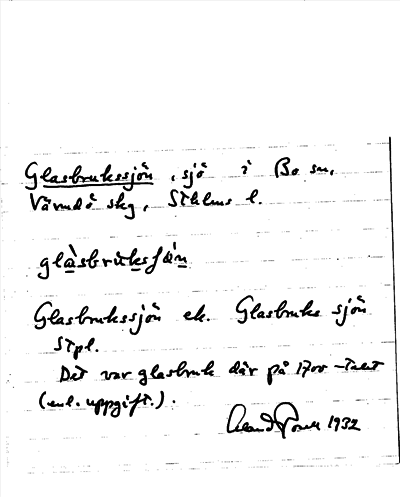 Glasbrukssjön, sjö i Bo sn,
Värmdö skg, Sthlms l.
glàsbruksʃø̀n
Glasbrukssjön ek. Glasbruks sjön
Stpl.
Det var glasbruk där på 1700-talet
(enl. uppgift.).
1932